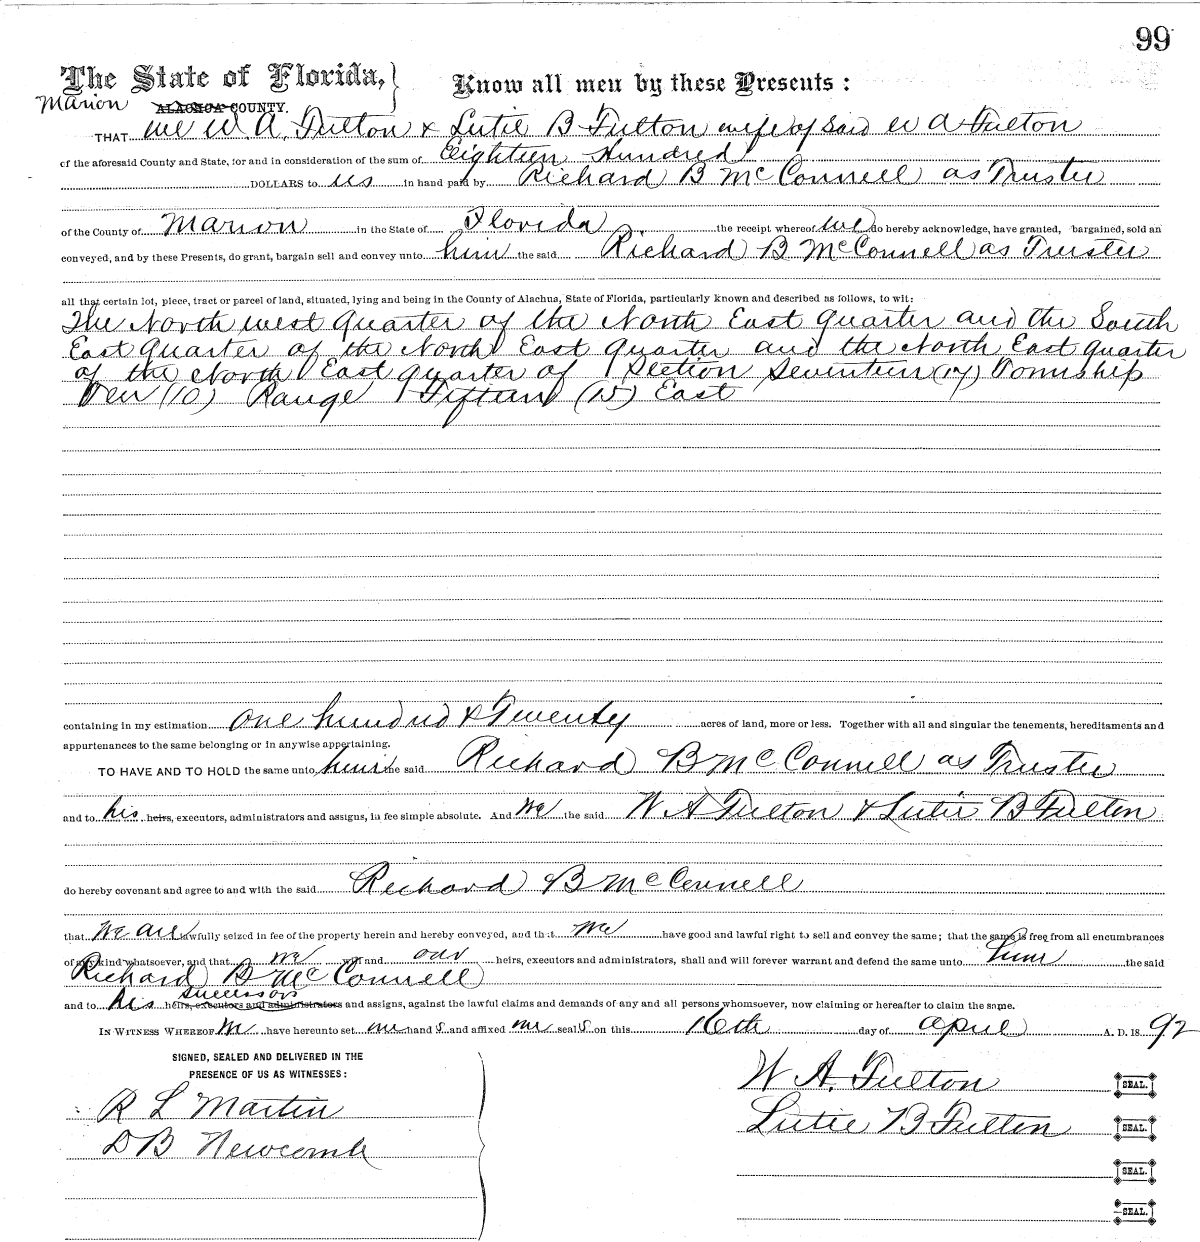 99
The State of Florida,
Know all men by these Presents :
Marion ALACHUA COUNTY.
THAT we W. A. Fulton & Lutie B Fulton wife of said W A Fulton
of the aforesaid County and State, for and in consideration of the sum of Eighteen Hundred
DOLLARS to us in hand paid by Richard B McConnell as Trustee
of the County of Marion in the State of Florida the receipt whereof we do hereby acknowledge, have granted, bargained, sold an
conveyed, and by these Presents, do grant, bargain sell and convey unto him the said Richard B McConnell as Trustee
all that certain lot, piece, tract or parcel of land, situated, lying and being in the County of Alachua, State of Florida, particularly known and described as follows, to wit:
The North west Quarter of the North East Quarter and the South
East Quarter of the North East Quarter and the North East Quarter
of the North East Quarter of Section Seventeen (17) Township
Ten (10) Range Fifteen (15) East
containing in my estimation one hundred & Twenty acres of land, more or less. Together with all and singular the tenements, hereditaments and
appurtenances to the same belonging or in anywise appertaining.
TO HAVE AND TO HOLD the same unto him the said Richard B McConnell as Trustee
and to his heirs, executors, administrators and assigns, in fee simple absolute. And we the said W A Fulton & Lutie B Fulton
do hereby covenant and agree to and with the said Richard B McConnell
that we are lawfully seized in fee of the property herein and hereby conveyed, and that we have good and lawful right to sell and convey the same; that the same is free from all encumbrances
of any kind whatsoever, and that we and our heirs, executors and administrators, shall and will forever warrant and defend the same unto him the said
Richard B McConnell
successors
and to his heirs, executors and administrators and assigns, against the lawful claims and demands of any and all persons whomsoever, now claiming or hereafter to claim the same.
IN WITNESS WHEREOF we have hereunto set our hand s and affixed our seal s on this 16th day of April A. D. 18 92
SIGNED, SEALED AND DELIVERED IN THE
PRESENCE OF US AS WITNESSES :
R L Martin
D B Newcomb
W. A. Fulton SEAL.
Lutie B Fulton SEAL.
SEAL.
SEAL.